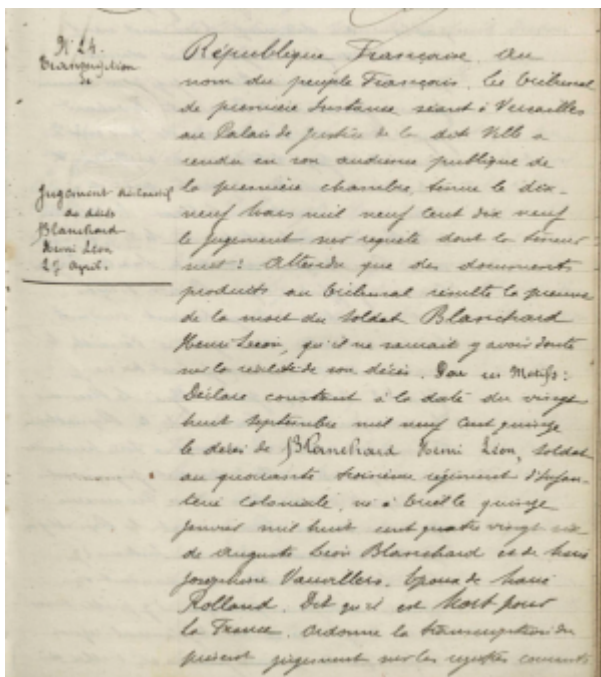 N° 24.
Transcription
de
Jugement déclaratif
de décès
Blanchard
Henri Léon
27 April.
République Française. Au
nom du peuple Français. Le Tribunal
de première Instance, séant à Versailles
au Palais de Justice de la dite Ville a
rendu en son audience publique de
la première chambre, tenue le dix-
neuf Mars mil neuf cent dix neuf
le jugement sur requête dont la teneur
suit : Attendu que des documents
produits au Tribunal résulte la preuve
de la mort du soldat Blanchard
Henri Léon, qu'il ne saurait y avoir doute
sur la réalité de son décès. Par ces Motifs :
Déclare constant à la date du vingt
huit septembre mil neuf cent quinze
le décès de Blanchard Henri Léon, soldat
au quarante troisième régiment d'Infan-
terie coloniale, né à le quinze
janvier mil huit cent quatre vingt six
de Auguste Blanchard et de Marie
Joséphine Vauvillers. Epoux de Marie
Rolland. Dit qu'il est Mort pour
la France. Ordonne la transcription du
présent jugement sur les registres courants